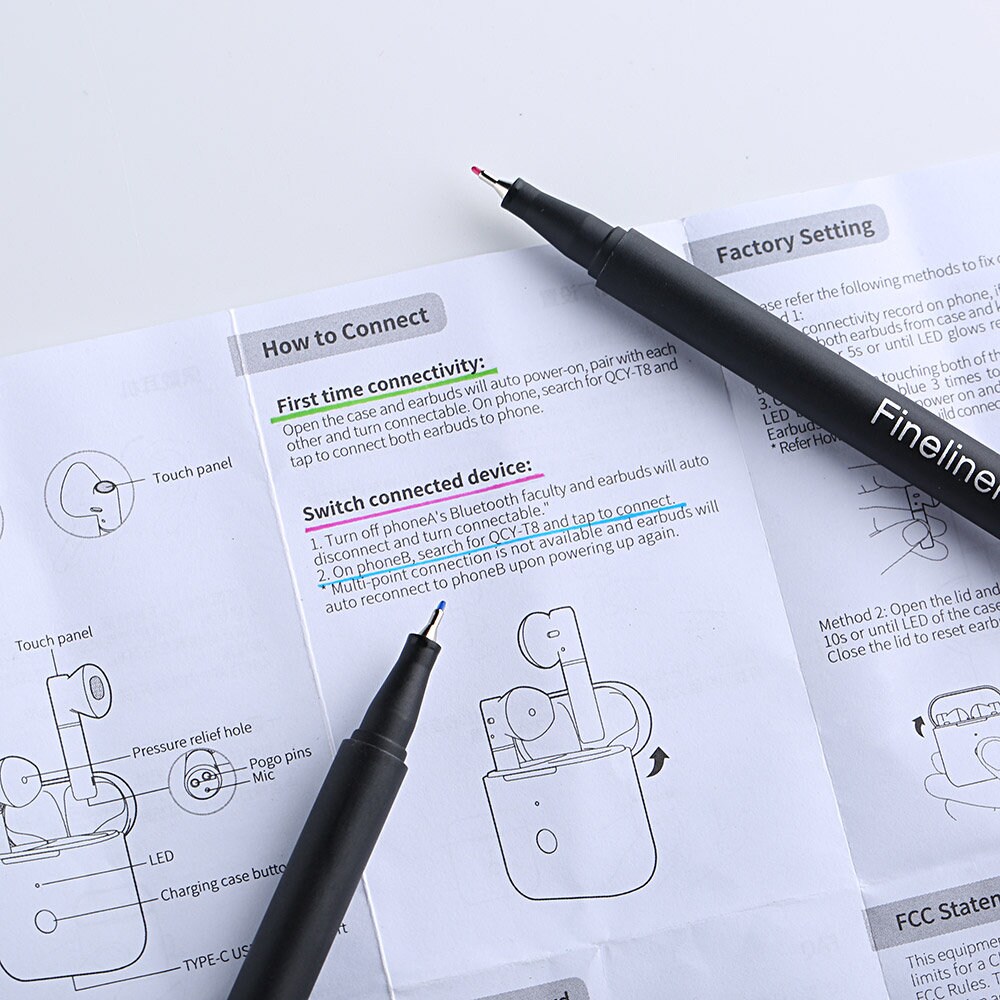 Touch panel
Touch panel
Pressure relief hole
Pogo pins
Mic
LED
Charging case
TYPE-C
How to Connect
First time connectivity:
Open the case and earbuds will auto power-on, pair with each
other and turn connectable. On phone, search for QCY-T8 and
tap to connect both earbuds to phone.
Switch connected device:
1. Turn off phoneA's Bluetooth faculty and earbuds will auto
disconnect and turn connectable."
2. On phoneB, search for QCY-T8 and tap to connect.
* Multi-point connection is not available and earbuds will
auto reconnect to phoneB upon powering up again.
Factory Setting
refer the following methods to fix
1:
connectivity record on phone,
both earbuds from case and
5s or until LED glows
touching both of the
3.
blue 3 times to
LED
power on and
Earbuds
* Refer
Method 2: Open the lid and
10s or until LED of the case
Close the lid to reset
FCC
This
limits for a
FCC Rules.
Fineliner